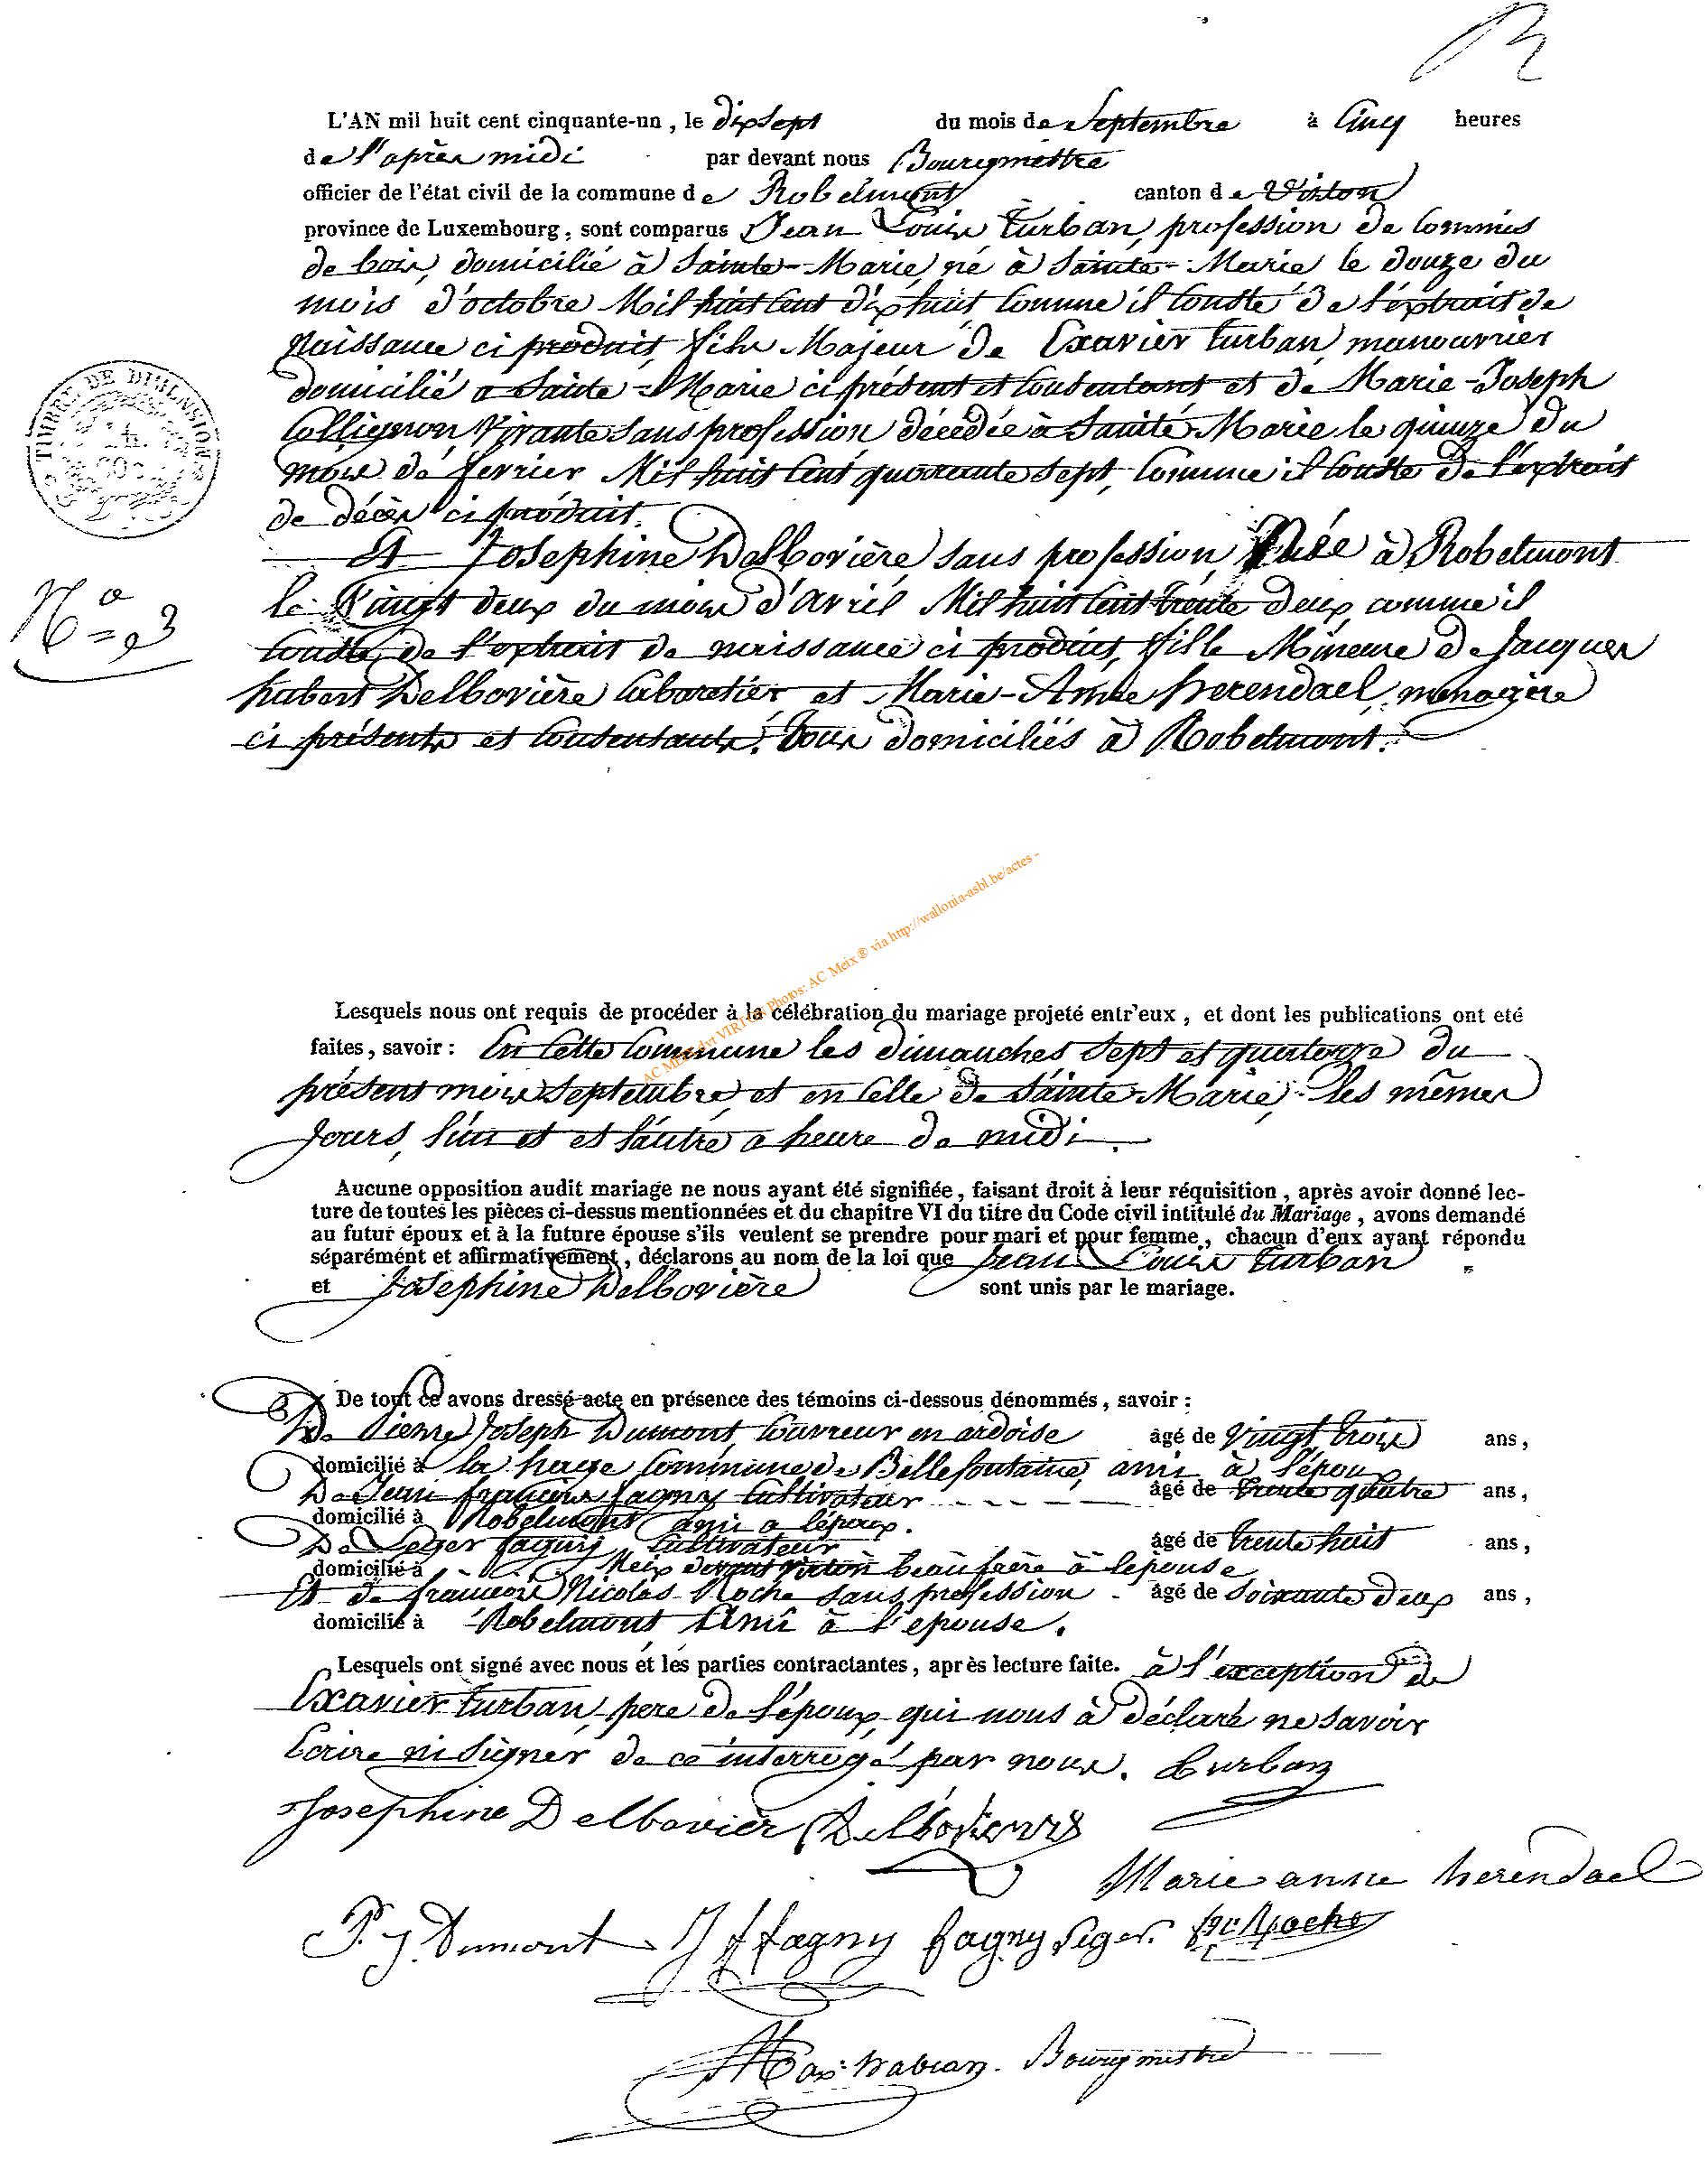 L'AN mil huit cent cinquante-un, le dixsept du mois de Septembre à Cinq heures
de l'après midi par devant nous Bourgmestre
officier de l'état civil de la commune de Robelmont canton de Virton
province de Luxembourg, sont comparus Jean Louis Turban, profession de Commis
de bois, domicilié à Sainte-Marie né à Sainte-Marie le douze du
mois d'octobre Mil huit Cent dix huit Comme il Conste de l'extrait de
Naissance ci produit, fils Majeur de Exavier Turban manouvrier
domicilié a Sainte-Marie ci présent et Consentant et de Marie-Joseph
Collignon, Vivante sans profession décédée à Sainte-Marie le quinze du
mois de fevrier Mil huit Cent quarante sept, Comme il Conste de l'extrait
de décès ci produit.
Et Josephine Delbovière, sans profession, Née à Robelmont
le Vingt deux du mois d'avril Mil huit Cent trente deux, comme il
Conste de l'extrait de naissance ci produit, fille Mineure de Jacques
hubert Delbovière Cabaretier et Marie-Anne herendael, menagère
ci présents et Consentants. Tous domiciliés à Robelmont.
TIMBRE DE DIMENSION
Nº= 23
Lesquels nous ont requis de procéder à la célébration du mariage projeté entr'eux, et dont les publications ont eté
faites, savoir: En Cette Commune les dimanches Sept et quatorze du
présent mois Septembre, et en Celle de Sainte-Marie, les mêmes
Jours, l'un et et l'autre a heure de midi.
AC Meix-dvt VIRTON Photos: AC Meix ® via http://wallonia-asbl.be/actes -
Aucune opposition audit mariage ne nous ayant été signifiée, faisant droit à leur réquisition, après avoir donné lec-
ture de toutes les pièces ci-dessus mentionnées et du chapitre VI du titre du Code civil intitulé du Mariage, avons demandé
au futur époux et à la future épouse s'ils veulent se prendre pour mari et pour femme, chacun d'eux ayant répondu
séparément et affirmativement, déclarons au nom de la loi que Jean Louis Turban
et Josephine Delbovière sont unis par le mariage.
De tout ce avons dressé acte en présence des témoins ci-dessous dénommés, savoir:
De Pierre Joseph Dumont, Couvreur en ardoise âgé de Vingt trois ans,
domicilié à la hage Commune de Bellefontaine, ami à l'époux
De Jean françois fagny Cultivateur âgé de trente quatre ans,
domicilié à Robelmont ami a l'époux.
De Leger fagny Cultivateur âgé de trente huit ans,
domicilié à Meix devant Virton beau frère à l'épouse
Et de françois Nicolas Roche sans profession âgé de Soixante deux ans,
domicilié à Robelmont Ami à l'epouse.
Lesquels ont signé avec nous et les parties contractantes, après lecture faite. à l'exception de
Exavier Turban, pere de l'époux, qui nous à déclaré ne savoir
Ecrire ni Signer de ce interrogé par nous. Turban
Josephine Delbovièr Delbovierre
Marie anne herendael
P. J. Dumont J f fagny fagny Leger. Roche
Bourgmestre